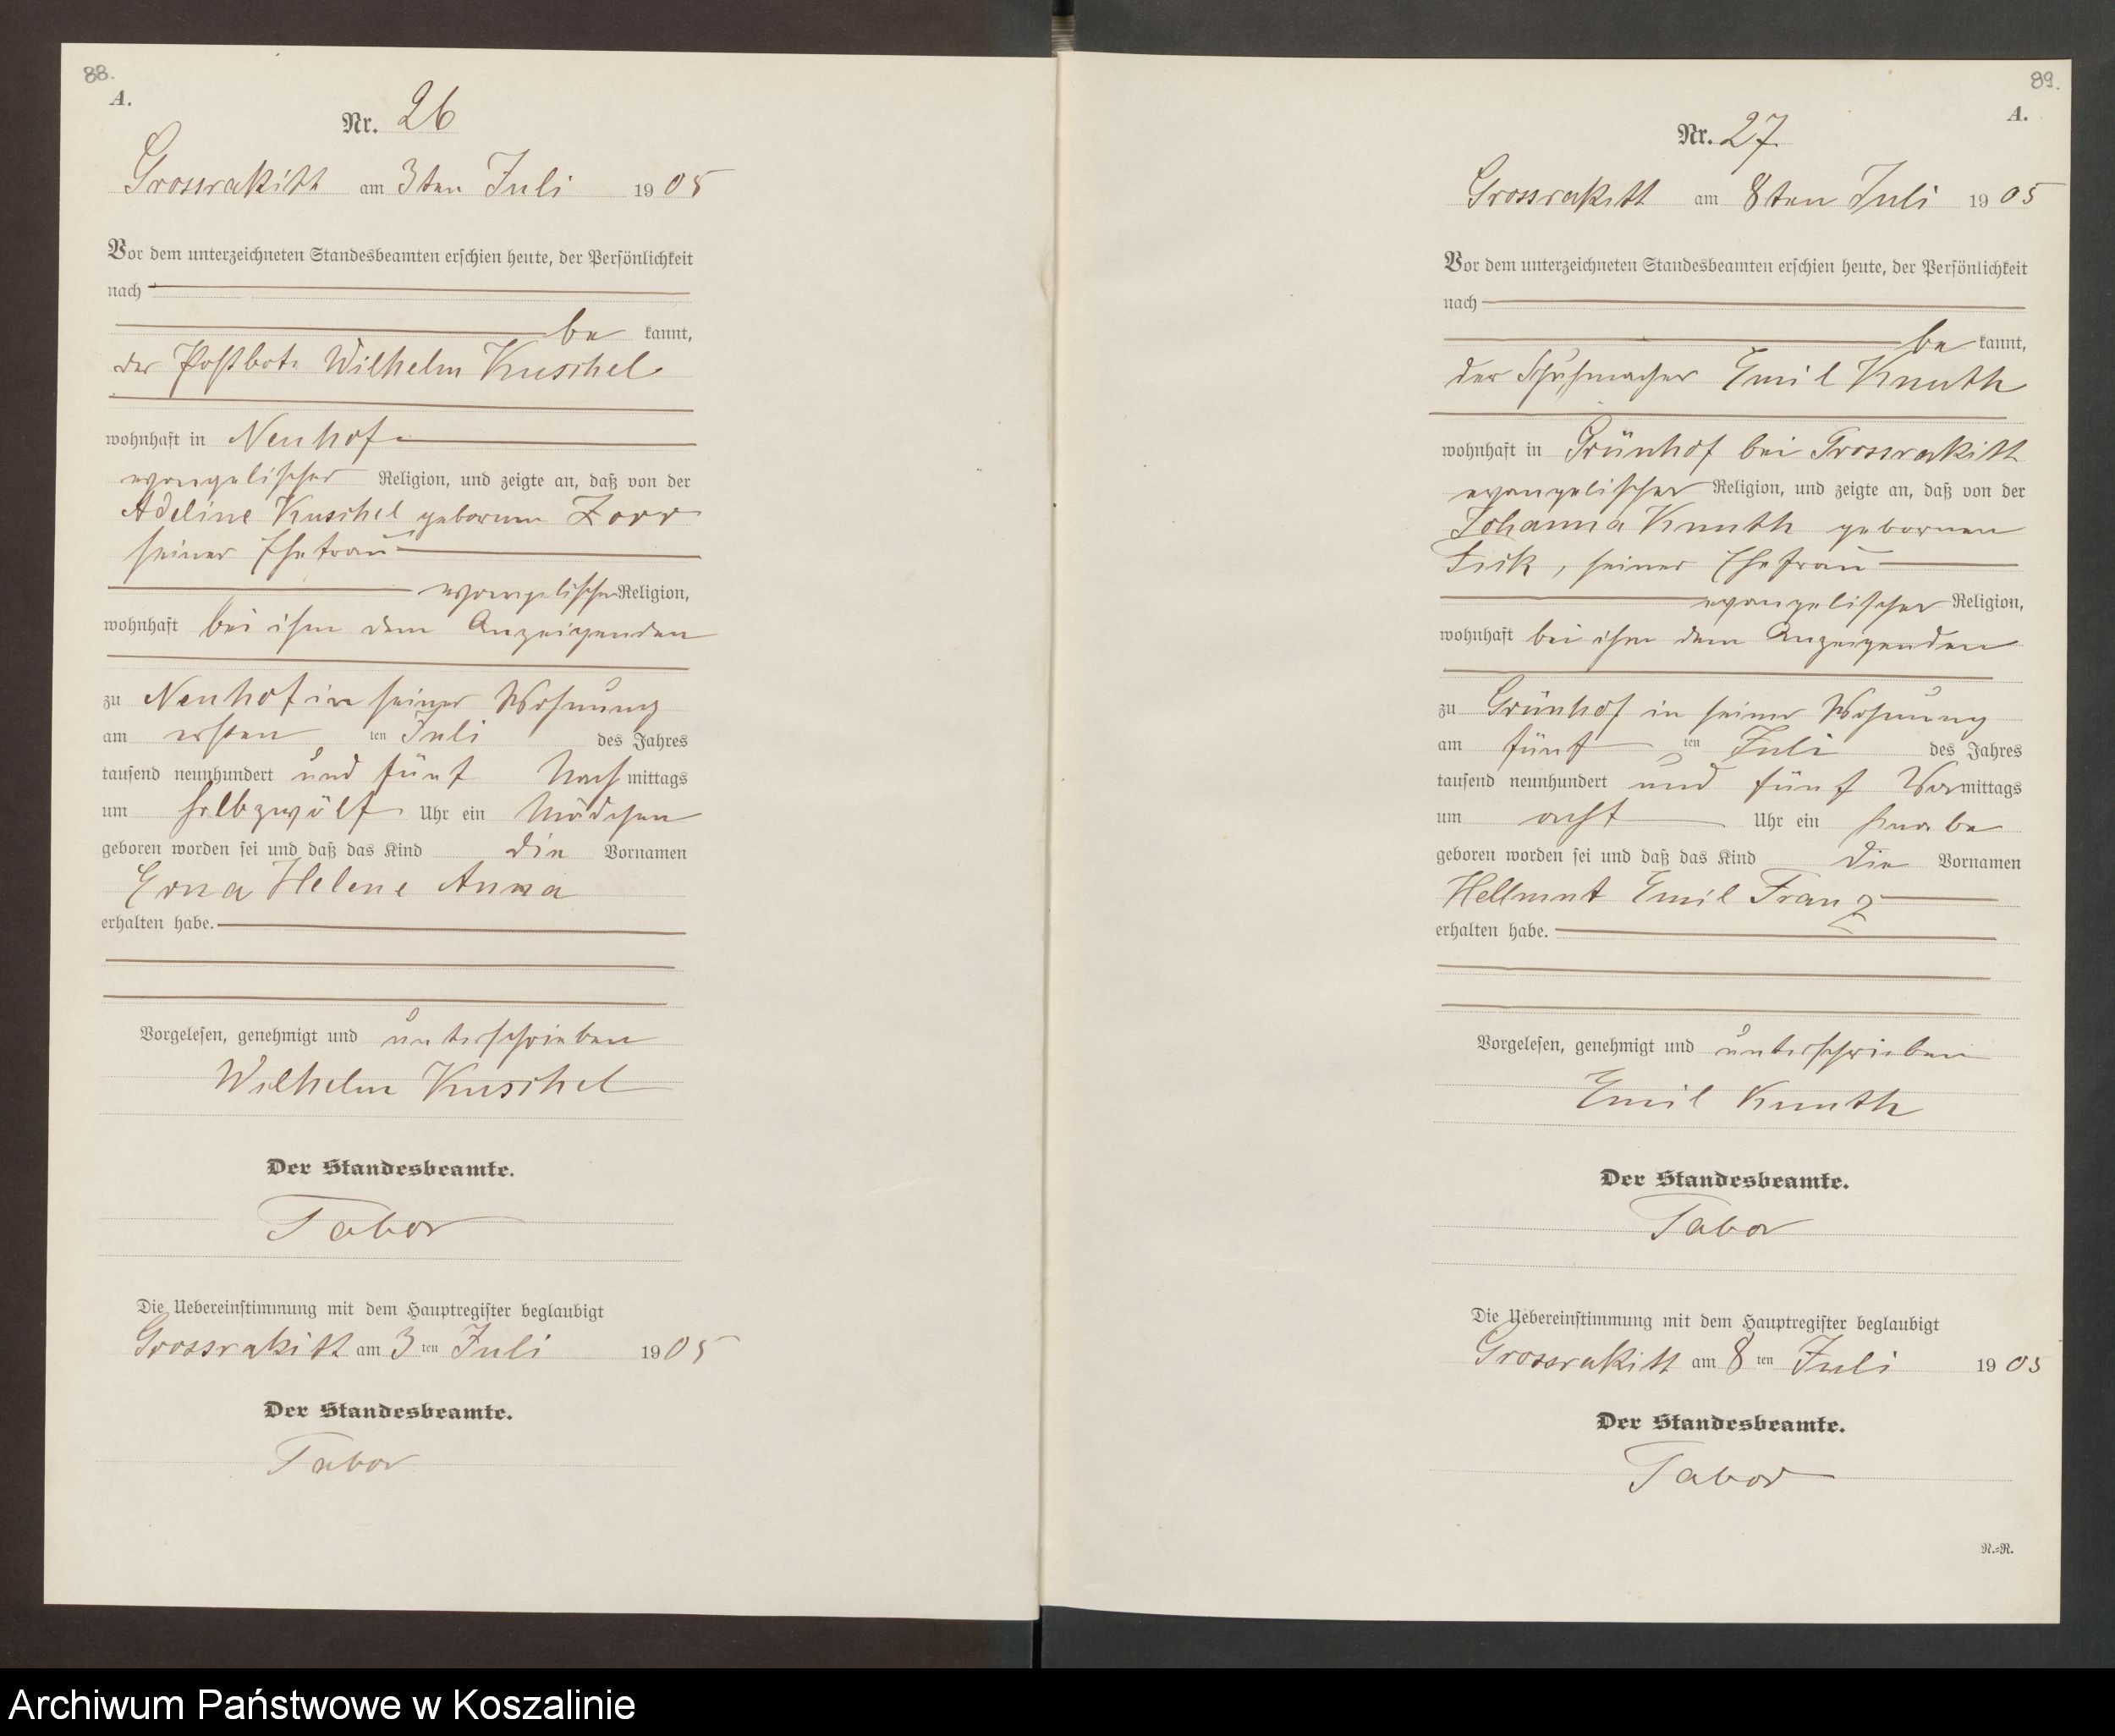 88.
A.
Nr. 26
Grossrakitt am 3ten Juli 1905
Vor dem unterzeichneten Standesbeamten erschien heute, der Persönlichkeit
nach
be kannt,
der Postbote Wilhelm Kuschel
wohnhaft in Neuhof
evangelischer Religion, und zeigte an, daß von der
Adeline Kuschel gebornen Zorr
seiner Ehefrau
evangelischer Religion,
wohnhaft bei ihm dem Anzeigenden
zu Neuhof in seiner Wohnung
am ersten ten Juli des Jahres
tausend neunhundert und fünf Nach mittags
um halbzwölf Uhr ein Mädchen
geboren worden sei und daß das Kind die Vornamen
Erna Helene Anna
erhalten habe.
Vorgelesen, genehmigt und unterschrieben
Wilhelm Kuschel
Der Standesbeamte.
Tabor
Die Uebereinstimmung mit dem Hauptregister beglaubigt
Grossrakitt am 3 ten Juli 1905
Der Standesbeamte.
Tabor
89.
A.
Nr. 27
Grossrakitt am 8ten Juli 1905
Vor dem unterzeichneten Standesbeamten erschien heute, der Persönlichkeit
nach
be kannt,
der Schuhmacher Emil Knuth
wohnhaft in Grünhof bei Grossrakitt
evangelischer Religion, und zeigte an, daß von der
Johanna Knuth gebornen
Fick, seiner Ehefrau
evangelischer Religion,
wohnhaft bei ihm dem Anzeigenden
zu Grünhof in seiner Wohnung
am fünf ten Juli des Jahres
tausend neunhundert und fünf Vor mittags
um acht Uhr ein Knabe
geboren worden sei und daß das Kind die Vornamen
Hellmut Emil Franz
erhalten habe.
Vorgelesen, genehmigt und unterschrieben
Emil Knuth
Der Standesbeamte.
Tabor
Die Uebereinstimmung mit dem Hauptregister beglaubigt
Grossrakitt am 8 ten Juli 1905
Der Standesbeamte.
Tabor
N.=R.
Archiwum Państwowe w Koszalinie